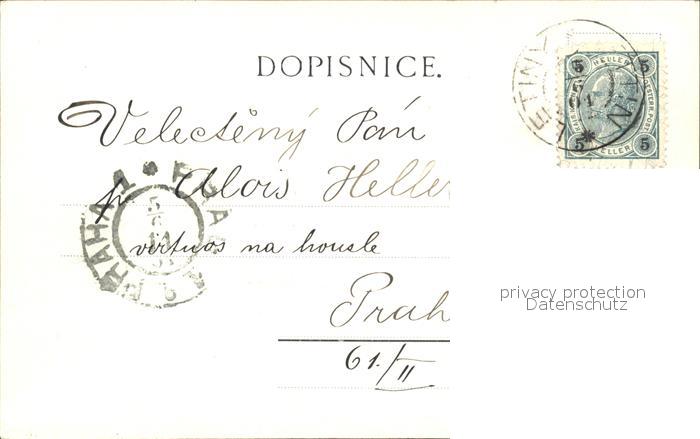 DOPISNICE.
Velectěný Pán
p. Alois Heller
virtuos na housle
Prah
61./II
PRAHA 1 * PRAG
5
6
5 HELLER 5
5 HELLER 5
privacy protection
Datenschutz